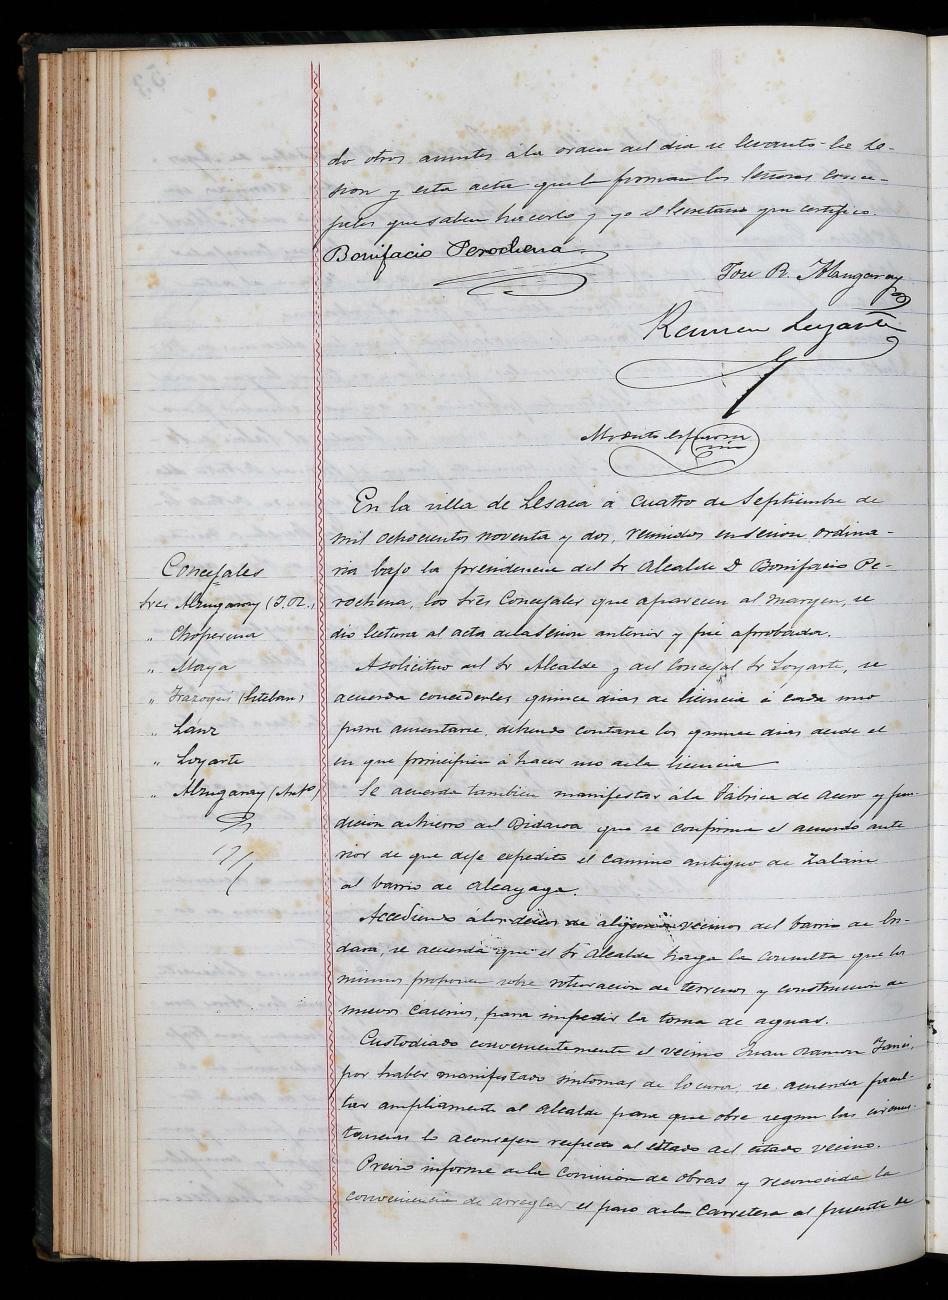 do otros asuntos á la orden del dia se levantó la se-
sion y esta acta que la firman los señores conce-
jales que saben hacerlo y yo el Secretario que certifico.
Bonifacio Perochena
José R. Alzugaray
Ramon Loyarte
Modesto Esparza
En la villa de Lesaca á cuatro de Septiembre de
mil ochocientos noventa y dos, reunidos en sesion ordina-
ria bajo la presidencia del Sr Alcalde D Bonifacio Pe-
rochena, los Sres Concejales que aparecen al margen, se
dió lectura al acta de la sesion anterior y fué aprobada.
Concejales
Sres Alzugaray (J. R.)
" Choperena
" Maya
" Irazoqui (Esteban)
" Lanz
" Loyarte
" Alzugaray (Anto)
A solicitud del Sr Alcalde y del Concejal Sr Loyarte, se
acuerda concederles quince dias de licencia á cada uno
para ausentarse, debiendo contarse los quince dias desde el
en que principien á hacer uso de la licencia
Se acuerda tambien manifestar á la Fábrica de acero y fun-
dicion de hierro del Bidasoa que se confirma el acuerdo ante
rior de que deje expedito el camino antiguo de Zalain
al barrio de Alcayaga.
Accediendo á los deseos de algunos vecinos del barrio de En-
dara, se acuerda que el Sr Alcalde haga la consulta que los
mismos proponen sobre roturacion de terrenos y construccion de
nuevos caserios, para impedir la toma de aguas.
Custodiado convenientemente el vecino Juan Ramon
por haber manifestado sintomas de locura, se acuerda facul-
tar ampliamente al alcalde para que obre segun las circuns-
tancias lo aconsejen respecto al estado del citado vecino.
Previo informe de la Comision de obras y reconocida la
conveniencia de arreglar el paso de la Carretera al puente de